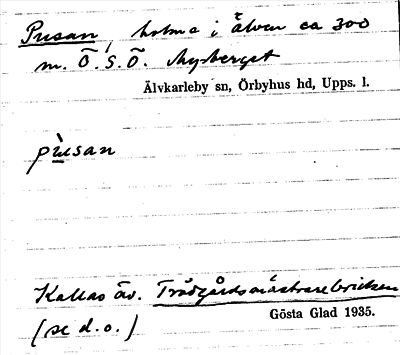 Pusan, holme i älven ca 300
m. Ö.S.Ö. Myrberget
Älvkarleby sn, Örbyhus hd, Upps. l.
pùsan
Kallas äv. Trädgårdsmästare
(se d.o.)
Gösta Glad 1935.